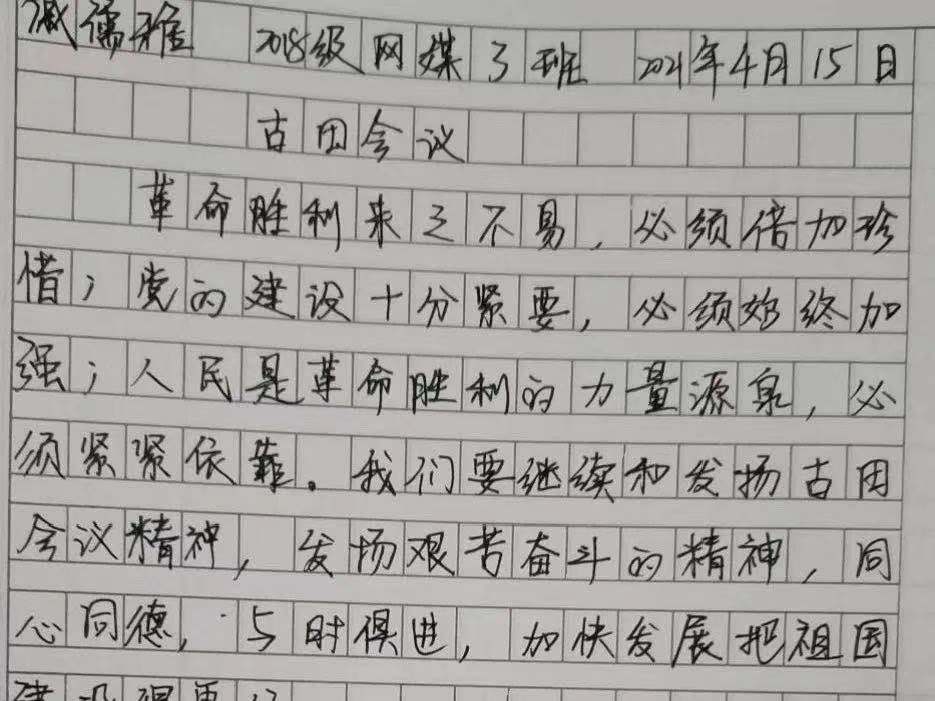 儒雅 2018级网媒3班 2021年4月15日
古田会议
革命胜利来之不易，必须倍加珍
惜；党的建设十分紧要，必须始终加
强；人民是革命胜利的力量源泉，必
须紧紧依靠。我们要继续和发扬古田
会议精神，发扬艰苦奋斗的精神，同
心同德，与时俱进，加快发展把祖国